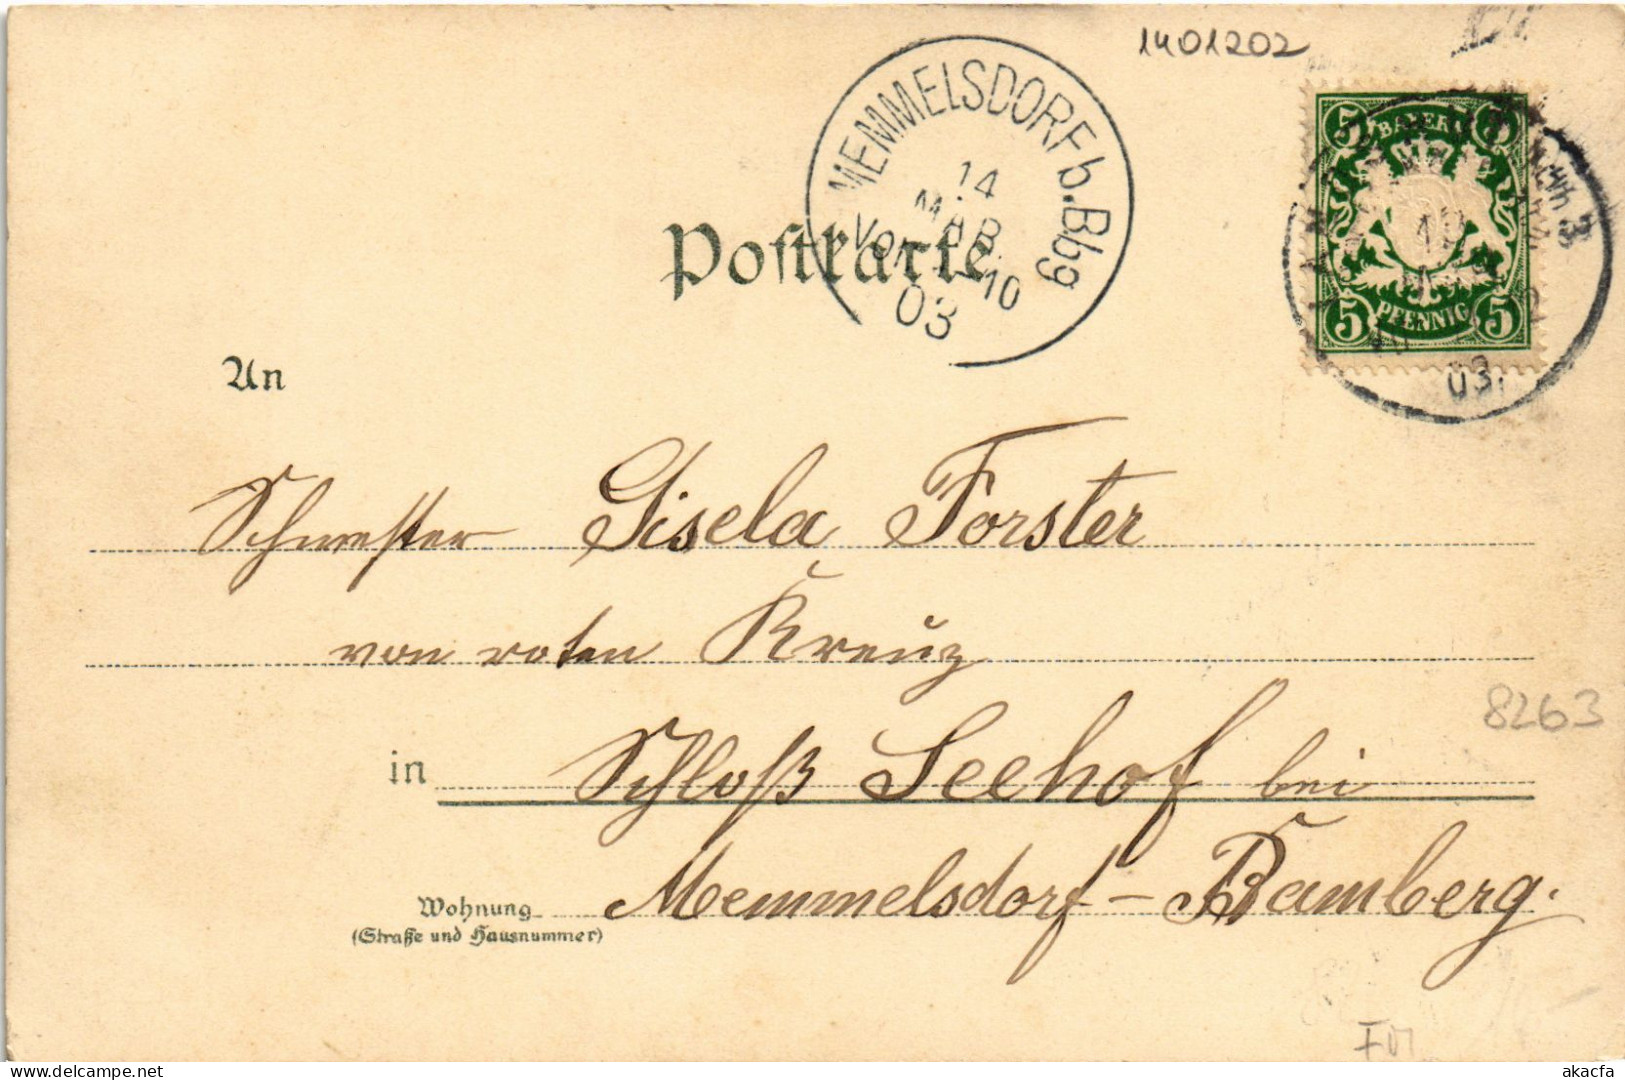 1401202
MEMMELSDORF b. Bbg
14
MÄR
Vor. 7-10
03
BAYERN
5 5
5 PFENNIG 5
03.
Postkarte
An
Schwester Gisela Forster
von roten Kreuz
in Schloß Seehof bei
8263
Wohnung Memmelsdorf-Bamberg.
(Straße und Hausnummer)
akacfa